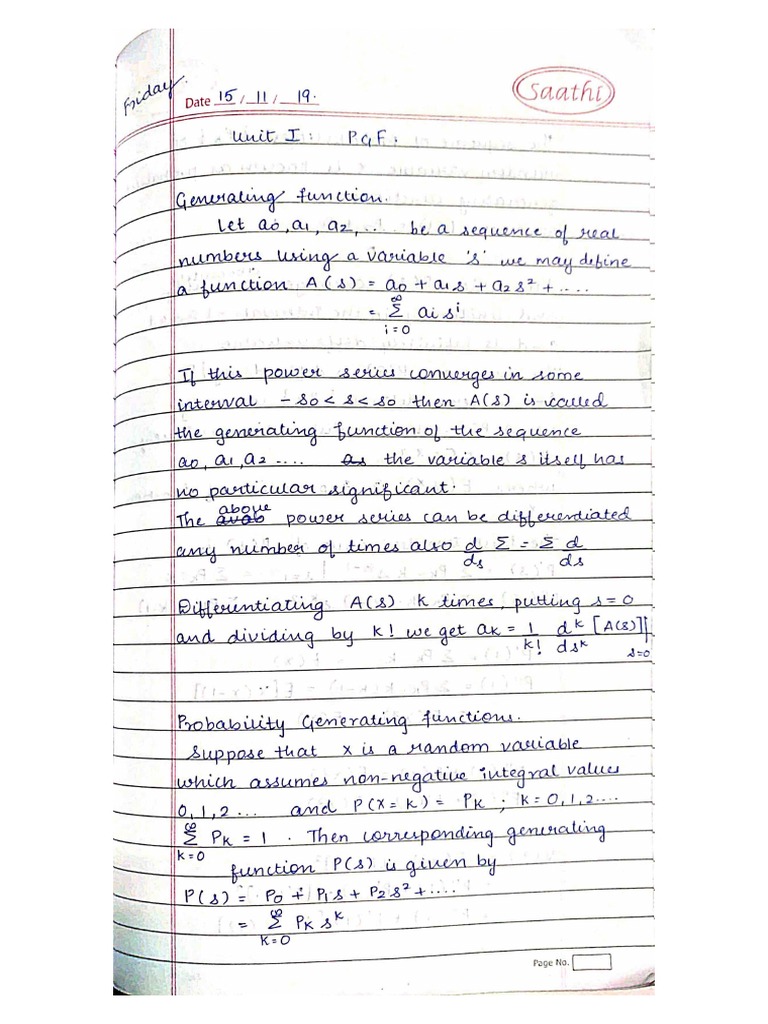 Friday.
Date 15 / 11 / 19.
Saathi
Unit I : P G F :
Generating function.
Let a₀, a₁, a₂, .. be a sequence of real
numbers using a variable 's' we may define
a function A(s) = a₀ + a₁s + a₂s² + ....
= ∞Σi=0 aᵢ sⁱ
If this power series converges in some
interval - s₀ < s < s₀ then A(s) is called
the generating function of the sequence
a₀, a₁, a₂ .... as the variable s itself has
no particular significant.
The above power series can be differentiated
any number of times also d/ds Σ = Σ d/ds
Differentiating A(s) K times, putting s = 0
and dividing by K! we get aₖ = 1/k! dᵏ/dsᵏ [A(s)]|s=0
Probability Generating functions.
Suppose that X is a random variable
which assumes non-negative integral values
0, 1, 2 ... and P(X = K) = Pₖ ; K = 0, 1, 2....
∞Σk=0 Pₖ = 1 . Then corresponding generating
function P(s) is given by
P(s) = P₀ + P₁s + P₂s² + ....
= ∞Σk=0 Pₖ sᵏ
Page No.